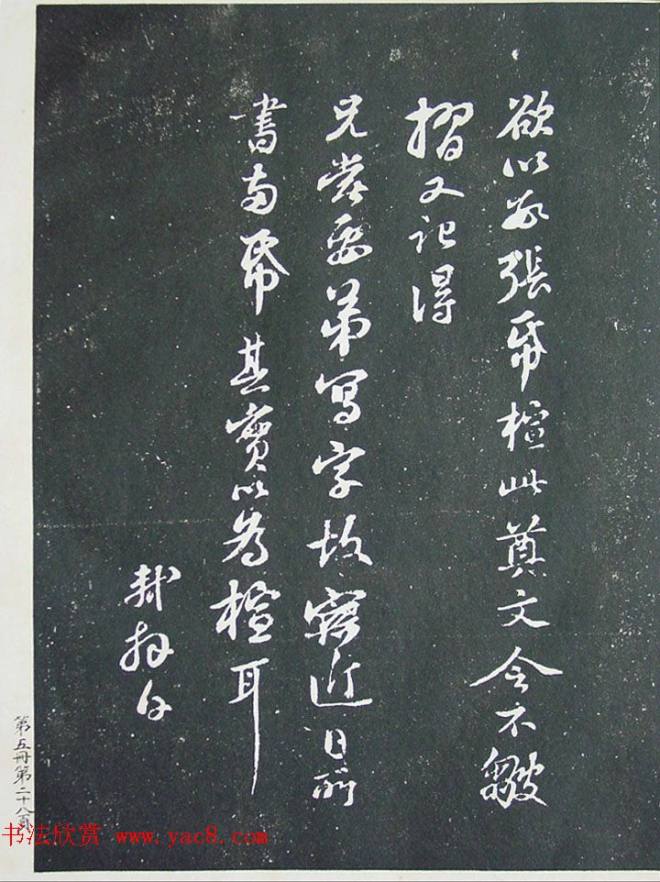 欲以數張帋楦此奠文令不皺
摺又記得
兄嘗要弟寫字故寫近日所
書兩帋其實以為楦耳
軾拜白
第五冊第二十八頁
书法欣赏 www.yac8.com